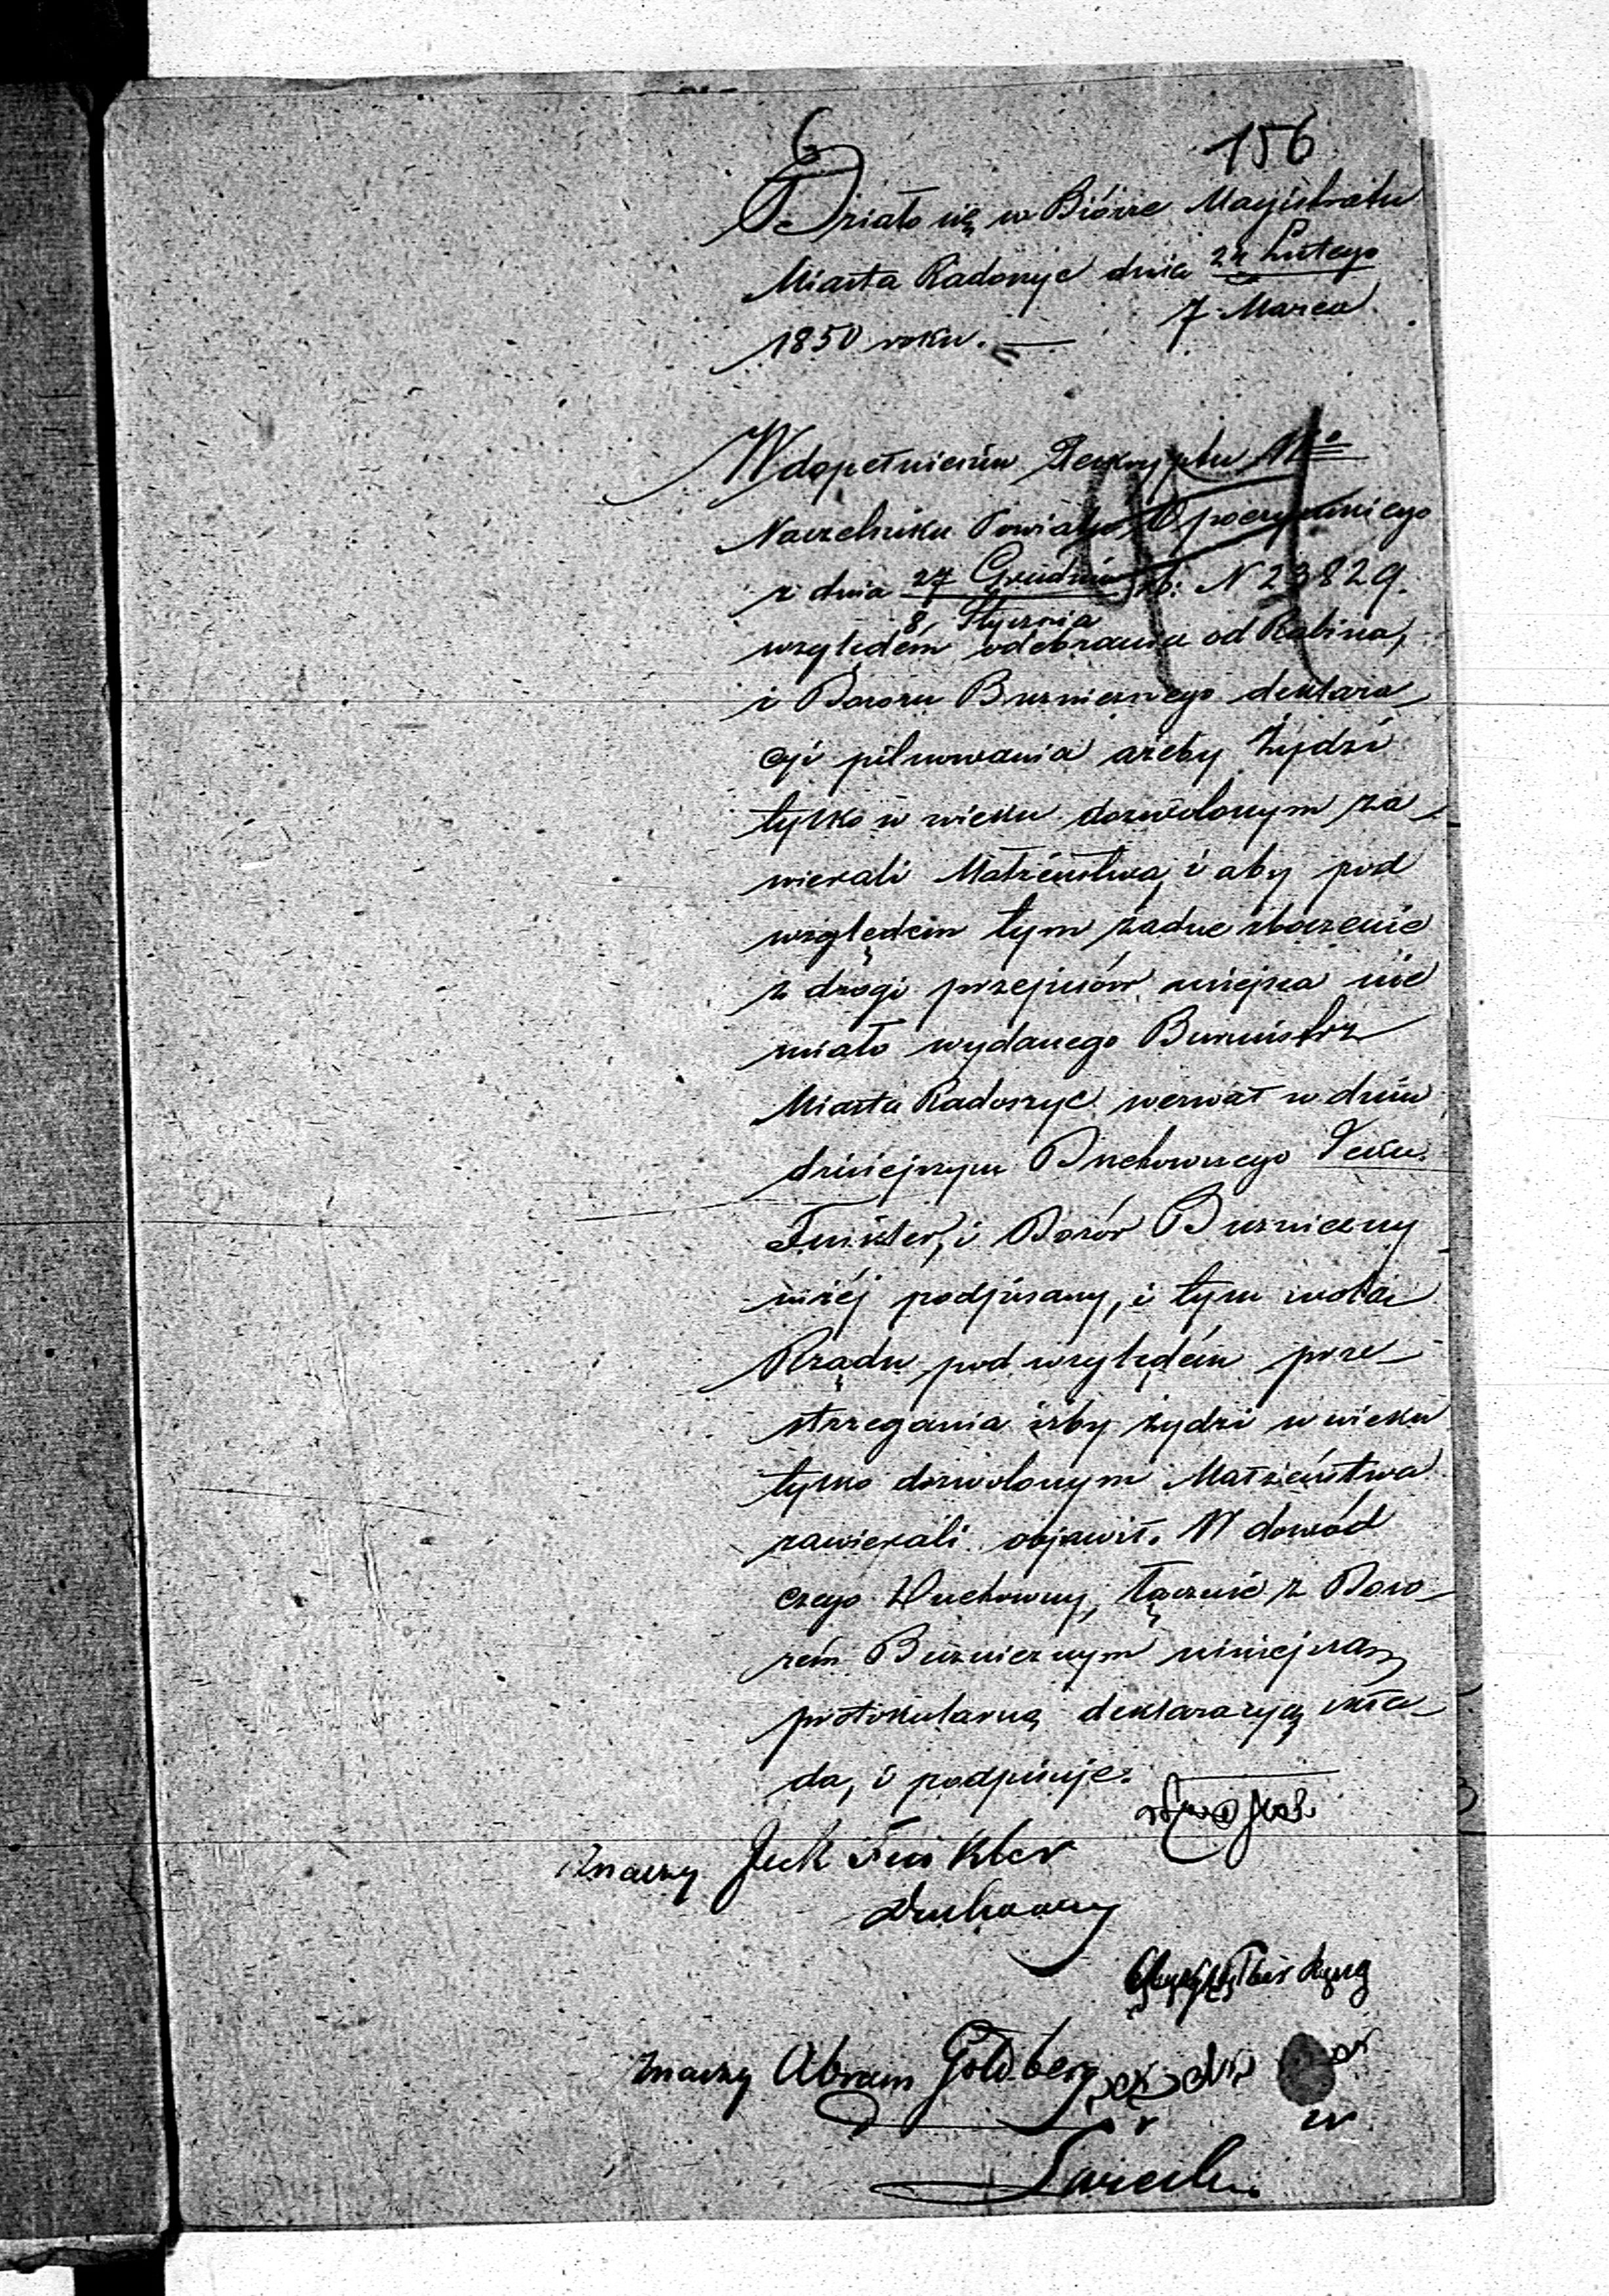 6
156
Działo się w Biórze Magistratu
Miasta Radoszyc dnia 24 Lutego
7 Marca
1850 roku. —
W dopełnieniu Reskryptu Wo
Naczelnika Powiatu Opoczyńskiego
z dnia 27 Grudnia rb: N 23829.
8 Stycznia
względem odebrania od Rabina,
i Dozoru Bużnicznego deklara-
cji pilnowania ażeby Żydzi
tylko w wieku dozwolonym za-
wierali Małżeństwa, i aby pod
względem tym żadne zboczenie
z drogi przepisów miejsca nie
miało wydanego Burmistrz
Miasta Radoszyc wezwał w dniu
dzisiejszym Duchownego
Finkler, i Dozór Bużniczny
niżej podpisany, i tym wolą
Rządu pod względem prze-
strzegania iżby żydzi w wieku
tylko dozwolonym Małżeństwa
zawierali objawił. W dowód
czego Duchowny, łącznie z Dozo-
rem Bużnicznym niniejszą
protokularną deklaracyą skła-
da, i podpisuje.
Znaczy Jcek Finkler
Duchowny
Znaczy Abram Goldberg